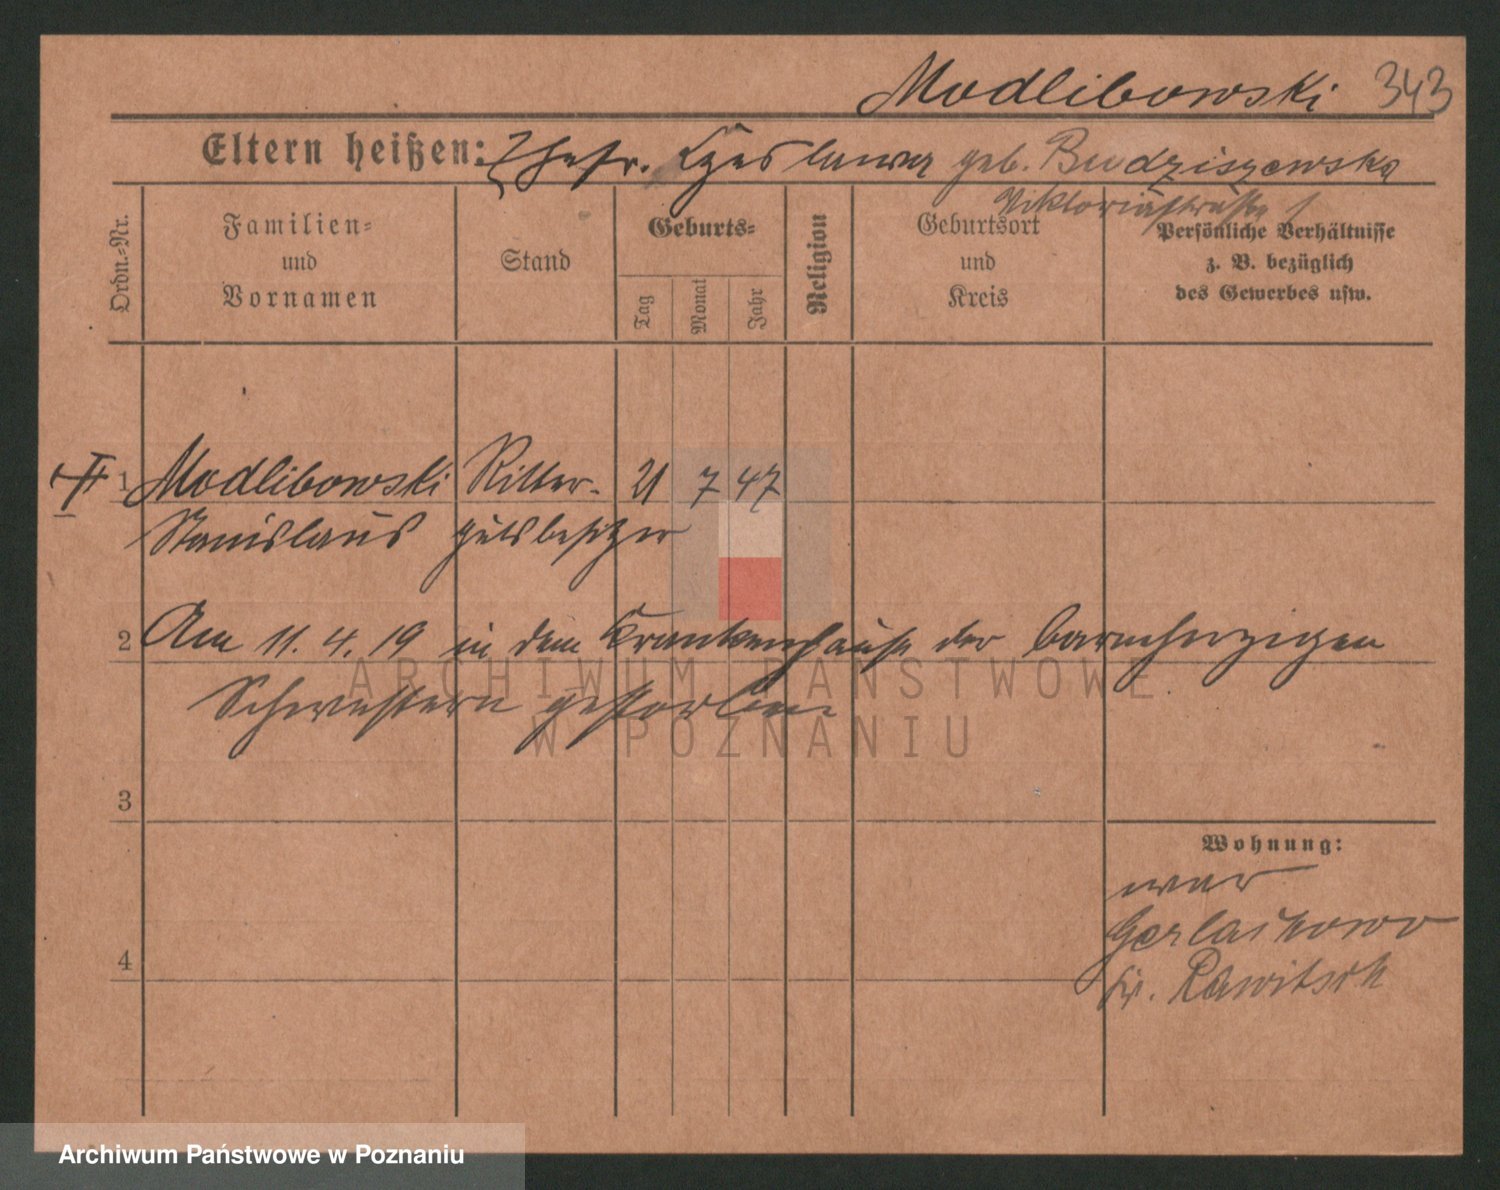 Modlibowski 343
Eltern heißen: Ehefr. Czeslawa geb. Budziszewska
Viktoriastraße 1
Ordn.-Nr.
Familien-
und
Vornamen
Stand
Geburts-
Tag
Monat
Jahr
Religion
Geburtsort
und
Kreis
Persönliche Verhältnisse
z. B. bezüglich
des Gewerbes usw.
1 Modlibowski Ritter- 21 7 47
Stanislaus gutsbesitzer
2 Am 11. 4. 19 in dem Krankenhause der barmherzigen
Schwestern gestorben
3
Wohnung:
war
Gerlachowo
4
Kr. Rawitsch
ARCHIWUM PAŃSTWOWE
W POZNANIU
Archiwum Państwowe w Poznaniu